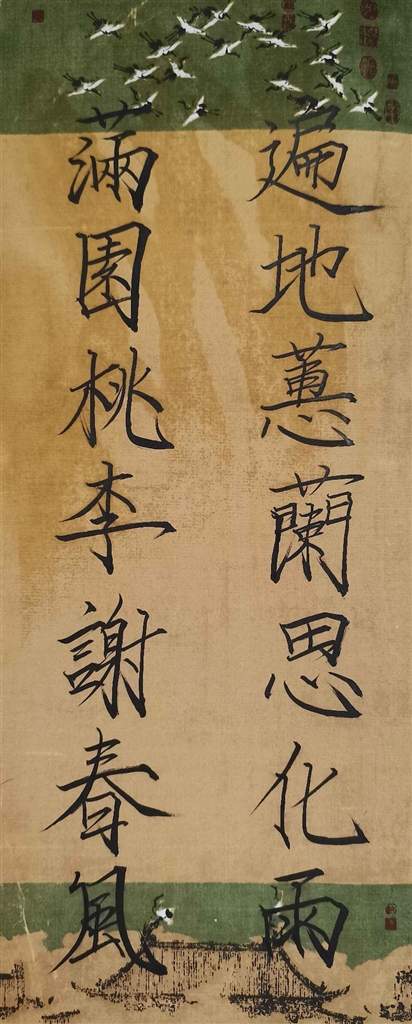 遍地蕙蘭思化雨
滿園桃李謝春風